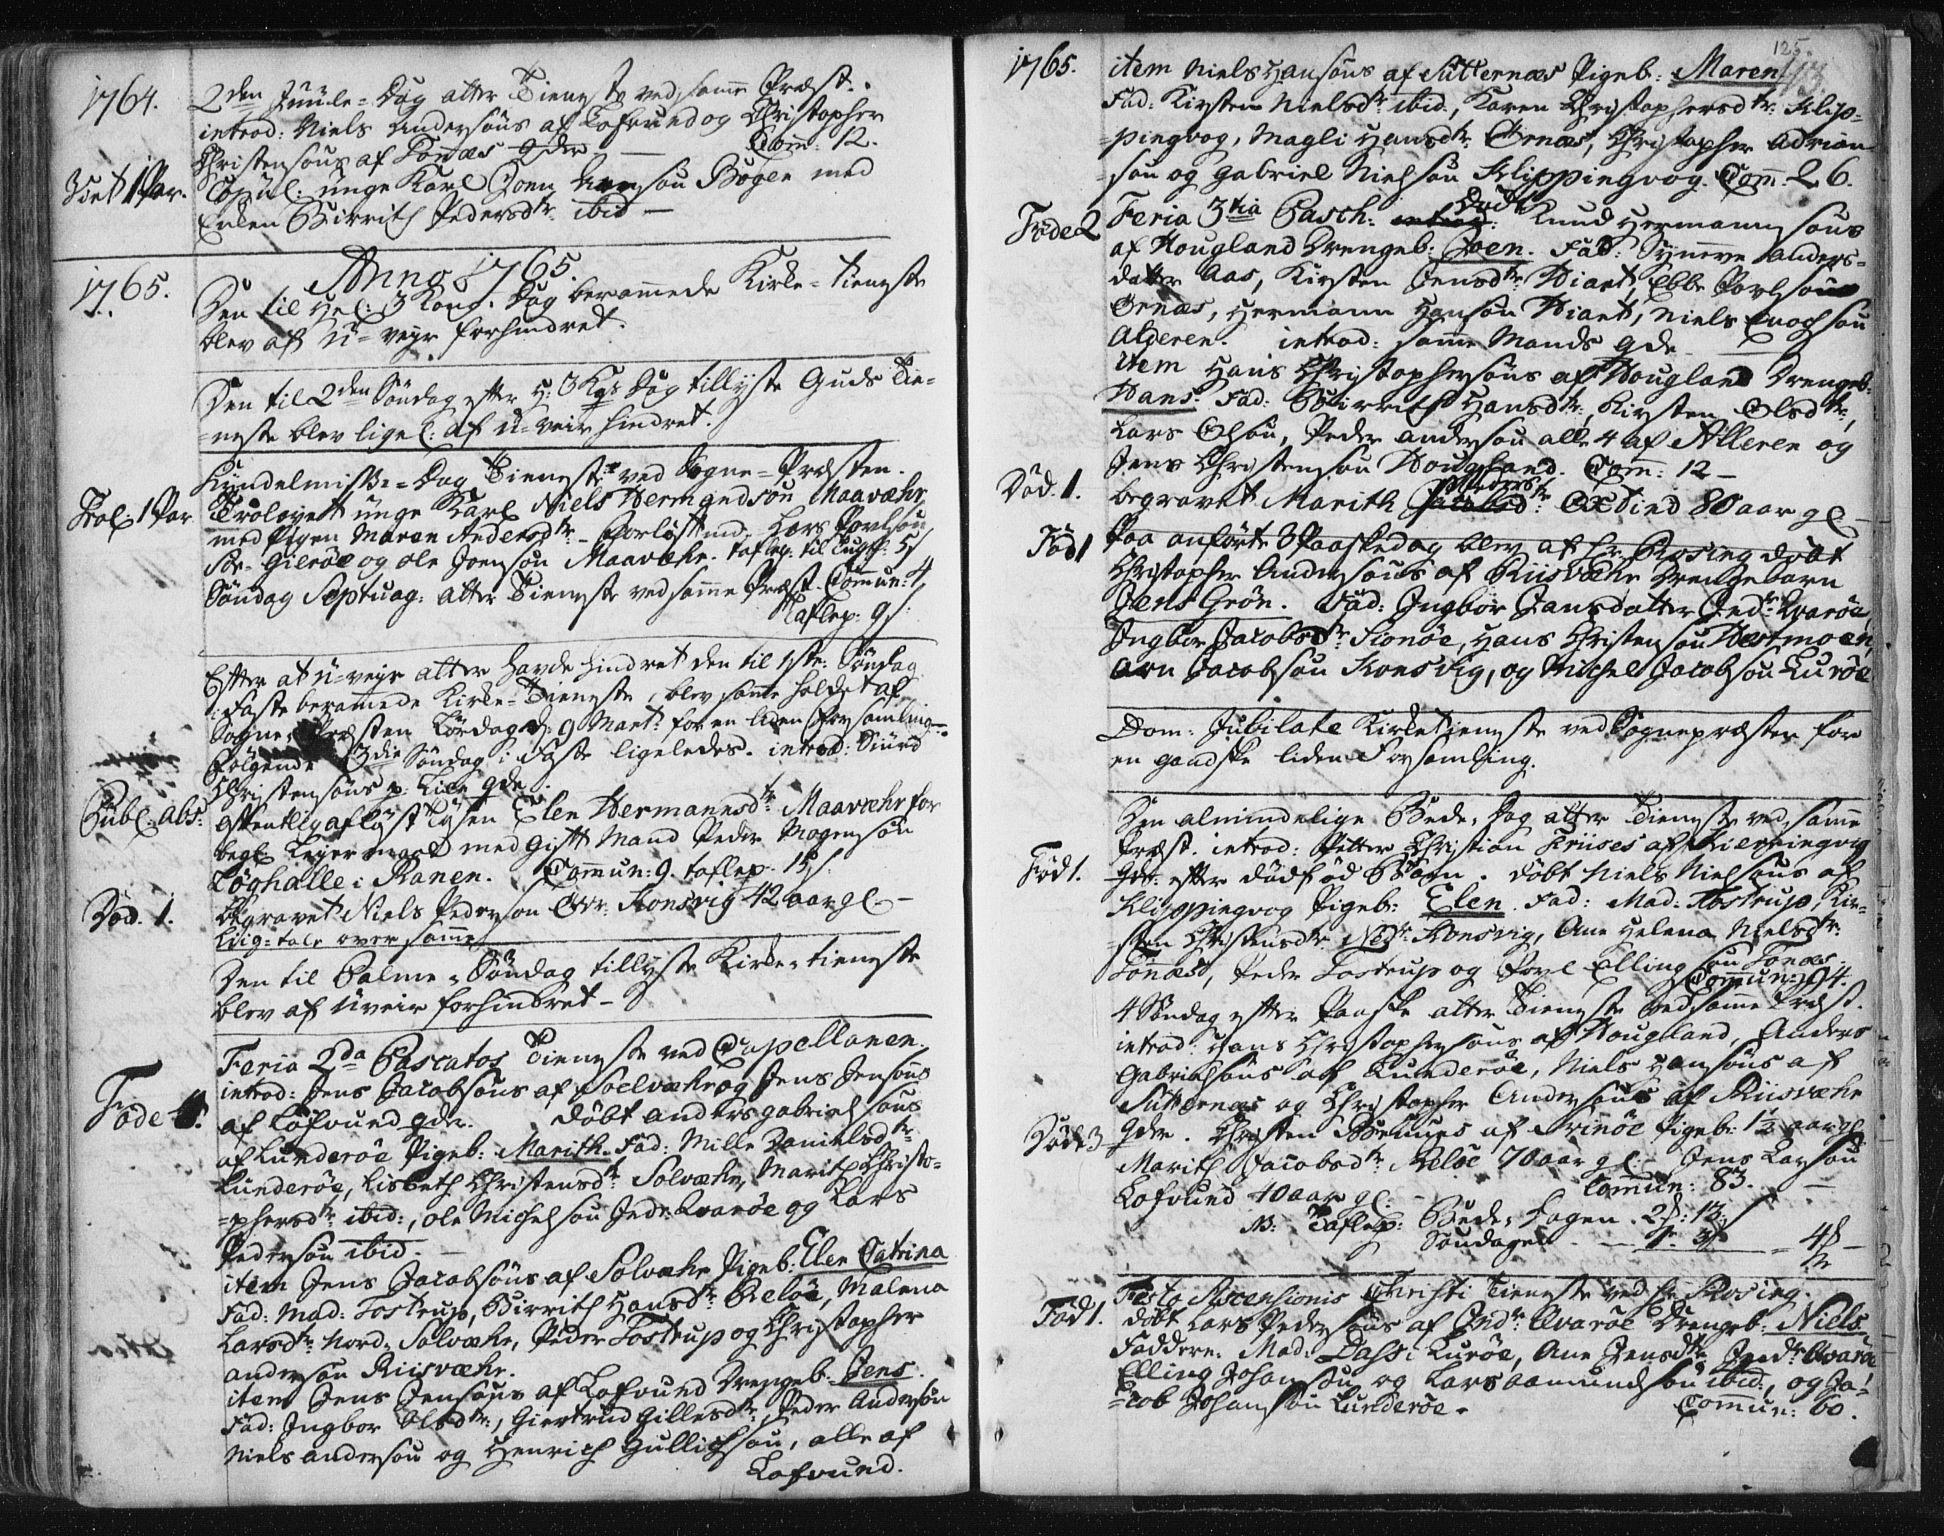 1764.
2den Juule-Dag atter Tieneste ved samme Præst.
introd: Niels Andersöns af Lofvund og Christopher
Christensöns af Tonæs qder — Com: 12.
Viet 1 Par.
Copul: unge Karl Joen Arnsön Bogen med
Enken Birrith Pedersdtr ibid —
1765.
Anno 1765.
Den til Hel: 3 Kong. Dag berammede Kirke-tieneste
blev af U-vejr forhindret.
Den til 2den Söndag efter H: 3 Kgs Dag tillyste Guds Tie-
-neste blev ligel: af U-veir hindret.
Kyndelmisse-Dag Tieneste ved Sogne-Præsten.
Trol: 1 Par
Trolovet unge Karl Niels Hermandsön Maavæhr
med Pigen Maren Andersdtr - Forlöftmd. Lars Povelsön
Sör-Gieröe og Ole Joensön Maavæhr. taflep. til Tugth: 5
Söndag Septuag: atter Tieneste ved samme Præst. Commun: 4
Taflep: 9
Efter at U-vejr atter havde hindret den til 1ste Söndag
i Faste berammede Kirke-Tieneste, blev samme holdet af
Sogne-Præsten Lördag d: 9 Marti for en liden Forsamling.
Fölgende 3die Söndag i Faste ligeledes. introd: Siurd
Christensöns p: qde.
Publ: abs:
Offentlig aflöst Tösen Elen Hermannsdtr Maavæhr for
begl: Leyermaal med gift Mand Peder Mogensön
Löghalle i Ranen. Commun: 9. taflep. 15
Död. 1.
Begravet Niels Pedersön Qvr: Konsvig 42 aar gl. —
Liig-tale over samme
Den til Palme-Söndag tillyste Kirke-tieneste
blev af Uveir forhindret —
Feria 2da Pascatos Tieneste ved Capellanen.
introd: Jens Jacobsöns af Soelvæhr og Jens Jensöns
Föde 4.
af Lofvund qder. Döbt Anders Gabrielsöns
af Lunderöe Pigeb: Marith. Fad: Mille Danielsdtr
Lunderöe, Lisbeth Christensdtr Solvæhr, Marith Christo-
-phersdtr ibid:, Ole Michelsön Indr: Qvaröe og Lars
Pedersön ibid. —
item Jens Jacobsöns af Solvæhr Pigeb: Elen Catrina
Fad: Mad: Tostrup, Birrith Hansdtr Selöe, Malena
Larsdtr Nord-Solvæhr, Peder Tostrup og Christopher
Andersön Riisvæhr.
item Jens Jensöns af Lofvund Drengeb: Jens.
Fad: Ingbor Olsdtr:, Giertrud Gillesdtr Peder Andersön
Niels Andersön og Henrich Gullichsön, alle af
Lofvund.
125.
1765.
item Niels Hansöns af Sutternæs Pigeb: Maren
Fad: Kirsten Nielsdtr ibid:, Karen Christophersdtr Klip-
-pingvog, Magli Hansdtr Ornæs, Christopher Adrian-
sön og Gabriel Nielsön Klippingvog. Com: 26.
Föde 2
Feria 3tia Pasch: Döbt Knud Hermannsöns
af Hougland Drengeb: Joen. Fad: Synneve Anders-
datter Aas, Kirsten Jensdtr Hiart, Ebbe Povelsön
Ornæs, Hermann Hansön Hiart, Niels Enochsön
Alderen. introd: samme Mands qde —
item Hans Christophersöns af Hougland Drengeb:
Hans: Fad: Birrith Hansdtr:, Kirsten Olsdtr:,
Lars Olsön, Peder Andersön alle 4 af Alleren og
Jens Christensön Hougland. Com: 12 —
Död. 1.
begravet Marith Peders Oxtind 80 aar gl —
Föd 1
Paa anförte 3 Paaskedag blev af Hr. Rosing döbt
Christopher Andersöns af Riisvæhr Drengebarn
Jens Grön. Fad: Ingbor Hansdatter Indr: Qvaröe,
Ingbor Jacobsdtr Sionöe, Hans Christensön Hestmoen,
Arn Jacobsön Konsvig, og Michel Jacobsön Luröe
Dom: Jubilate Kirketieneste ved Sognepræsten for
en gandske liden Forsamling.
Den almindelige Bede-Dag atter Tieneste ved samme
Præst. introd: Petter Christian Friises af Kierringvig
Föd 1.
qde: efter dödföd Barn. döbt Niels Nielsöns af
Klippingvog Pigeb: Elen. Fad: Mad: Tostrup, Kir-
sten Christensdtr Nedr: Konsvig, Ane Helena Nielsdtr:
Tonæs, Peder Tostrup og Povl Ellingsön Tonæs.
Commun: 94.
4 Söndag efter Paaske atter Tieneste ved samme Præst.
introd: Hans Christophersöns af Hougland, Anders
Gabrielsöns af Lunderöe, Niels Hansöns af
Sutternæs og Christopher Andersöns af Riisvæhr
Död 3
qder. Christen af Svinöe Pigeb: 1½ aar gl
Marith Jacobsdtr Selöe 70 aar gl — Jens Larsön
Lofvund 40 aar gl: Commun: 83. —
N: Taflep: Bede-dagen 2
Söndagen
Festo Ascensionis Christi Tieneste ved Hr. Rosing.
Föd 1.
döbt Lars Pedersöns af Indr: Qvaröe Drengeb: Niels.
Faddere: Mad: Dass i Luröe, Ane Jensdtr Indr: Qvaröe
Elling Johansön og Lars Aamundsön ibid:, og Ja-
-cob Johansön Lunderöe. Commun: 60.